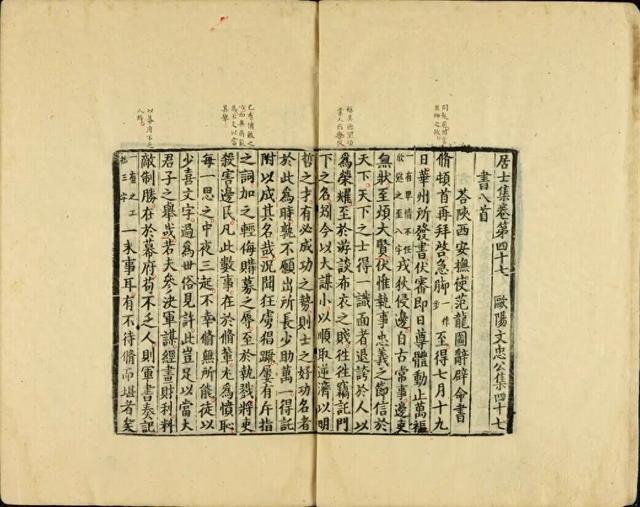 居士集卷第四十七　歐陽文忠公集四十七
書八首
荅陝西安撫使范龍圖辭辟命書
脩頓首再拜啓急脚一作步至得七月十九
日華州所發書伏審即日尊體動止萬福
一有卑情不任欣慰之至八字戎狄侵邊自古常事邊吏
無狀至煩大賢伏惟執事忠義之節信於
天下天下之士得一識面者退誇於人以
為榮耀至於游談布衣之賤往往竊託門
下之名矧今以大謀小以順取逆濟以明
哲之才有必成功之勢則士之好功名者
於此為時孰不願出所長少助萬一得託
附以成其名哉況聞狂虜猖蹶屢有斥指
之詞加之輕侮購募之辱至於執戮將吏
殺害邊民凡此數事在於脩輩尤為憤恥
每一思之中夜三起不幸脩無所能徒以
少喜文字過為世俗見許此豈足以當大
君子之舉哉若夫參決軍謀經畫財利料
敵制勝在於幕府苟不乏人則軍書奏記
一有之工拙三字一末事耳有不待脩而堪者矣